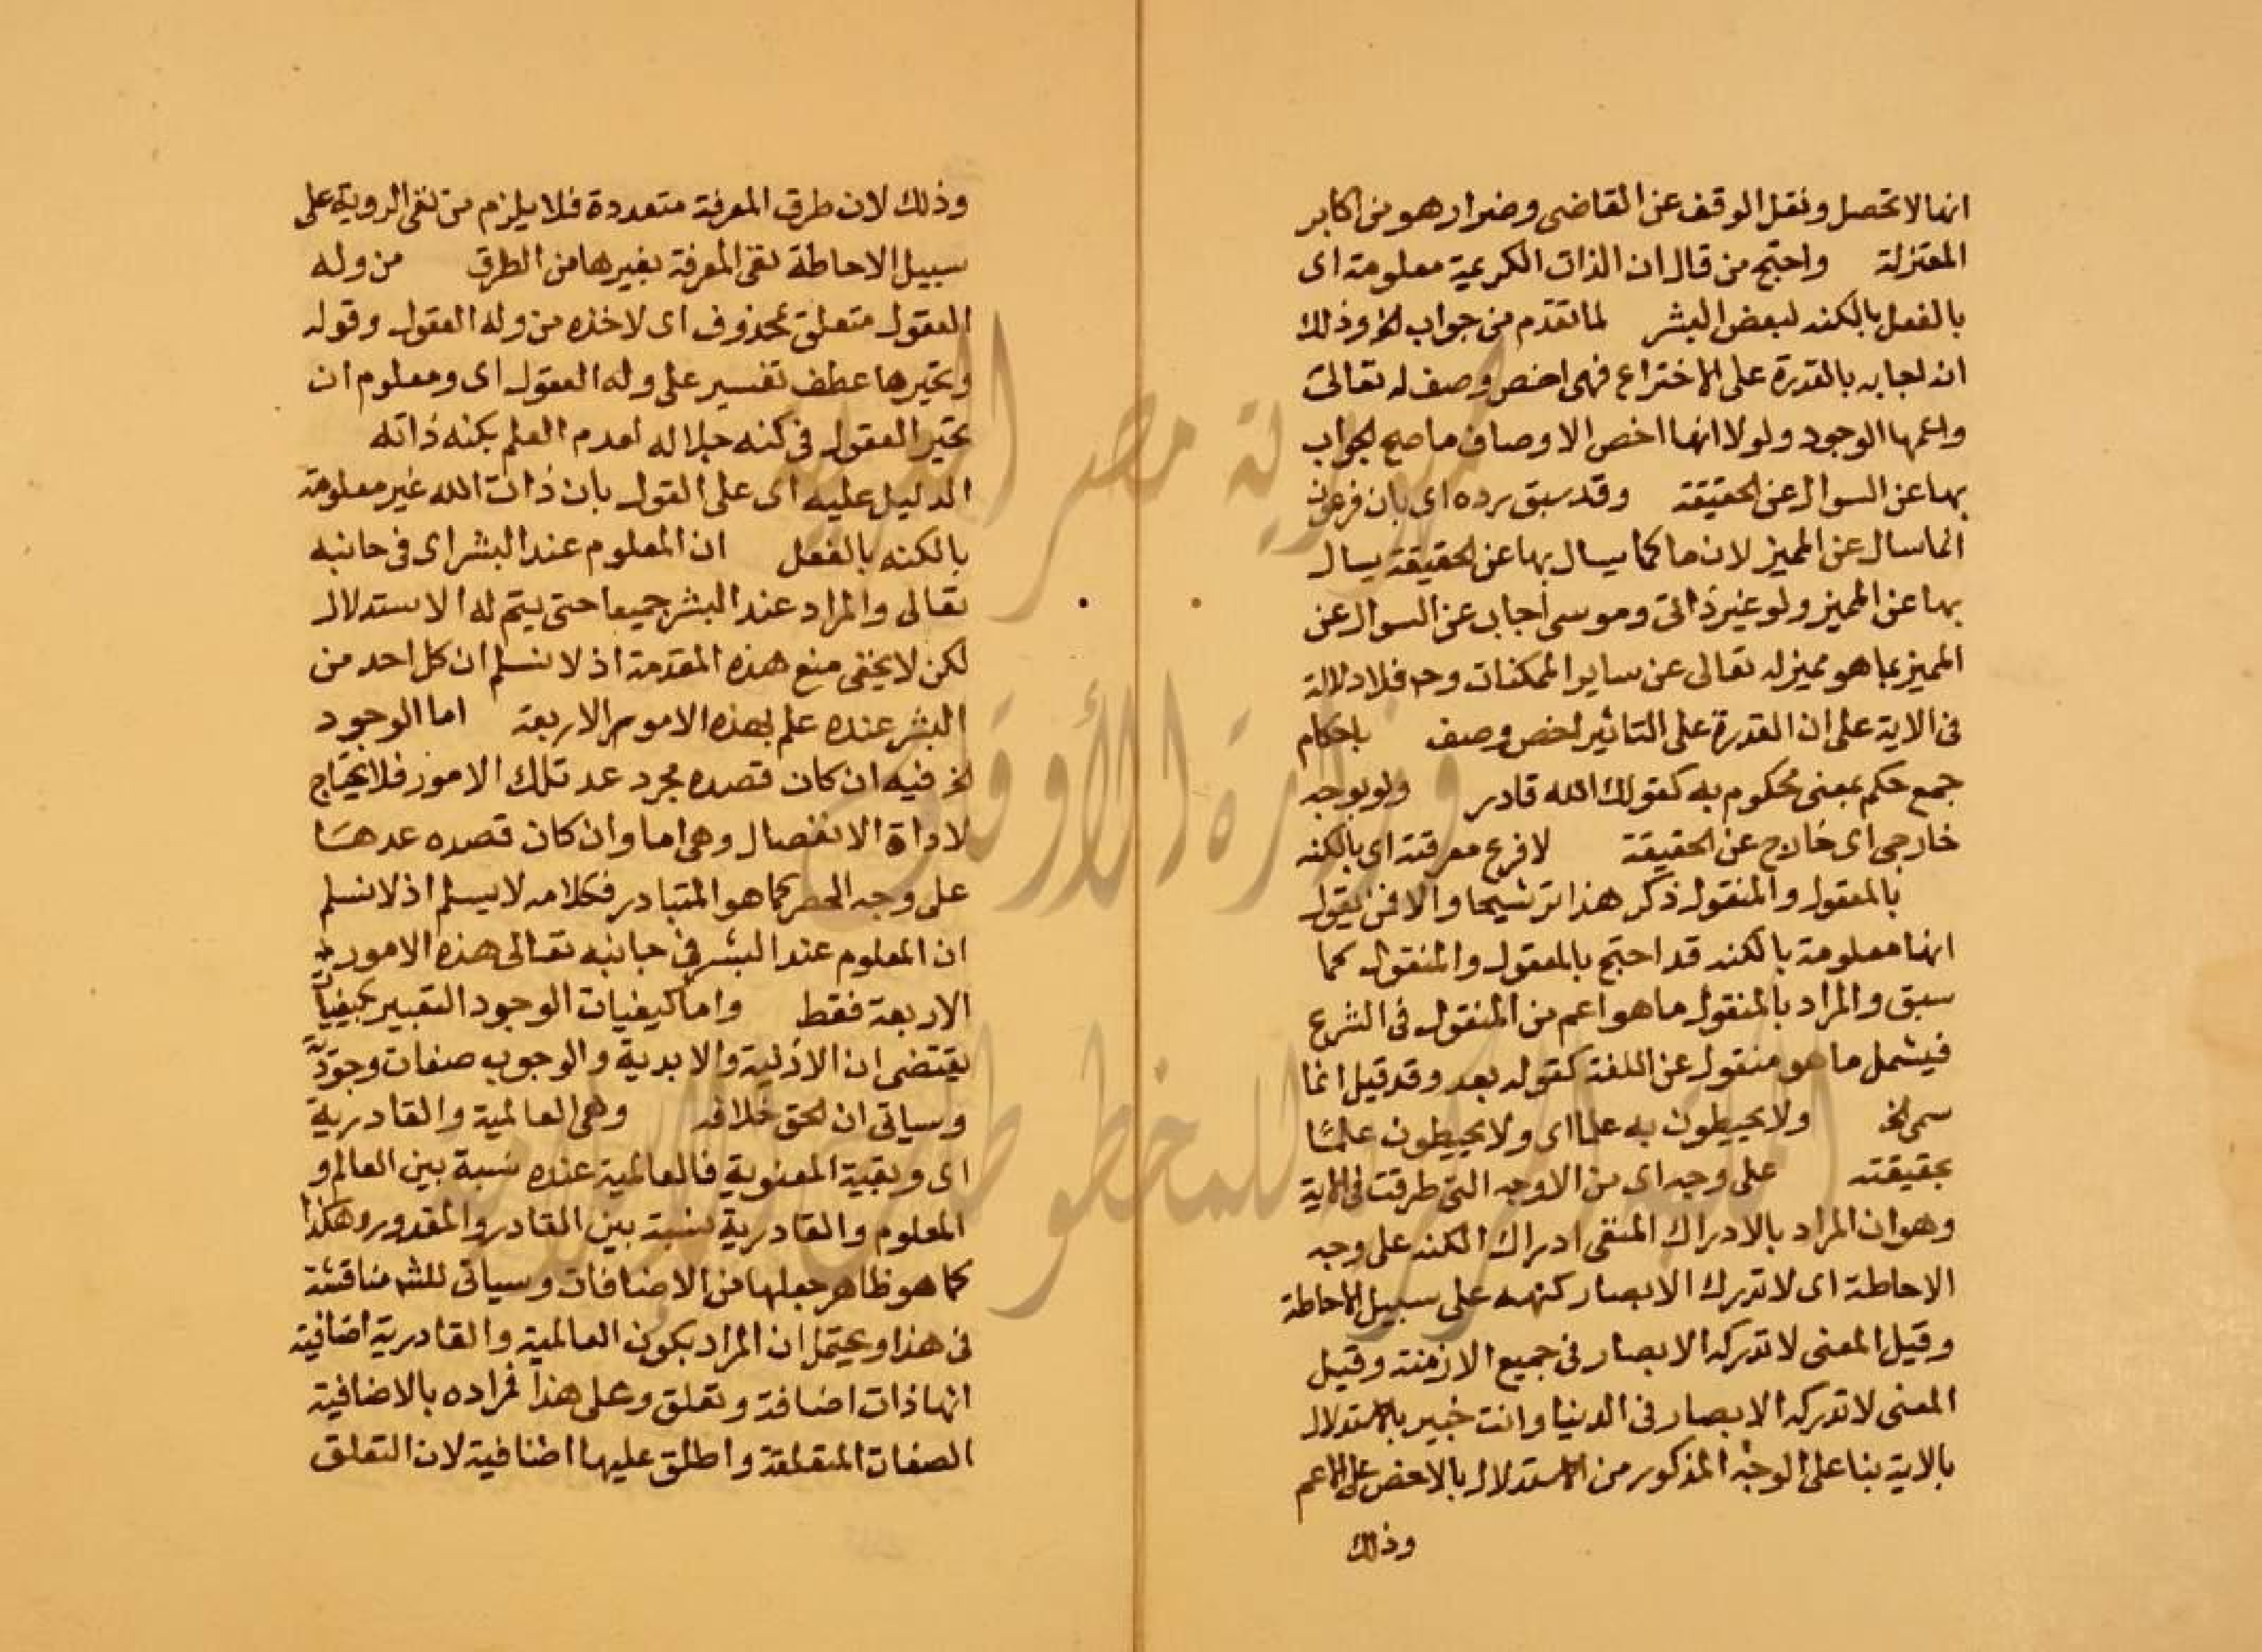 انها لا تحصل ونقل الوقف عن القاضى وضرار هو من اكابر
المعتزلة واحتج من قال ان الذات الكريمة معلومة اى
بالفعل بالكنه لبعض البشر لما تقدم من جواب الخ وذلك
انه اجابه بالقدرة على الاختراع فهى اخص وصف له تعالى
واعمها الوجود ولولا انها اخص الاوصاف ما صح الجواب
بها عن السوال عن الحقيقة وقد سبق رده اى بان فرعون
انما سال عن المميز لان ما كما يسال بها عن الحقيقة يسال
بها عن المميز ولو غير ذاتى وموسى اجاب عن السوال عن
المميز بما هو مميز له تعالى عن ساير الممكنات وح فلا دلالة
فى الاية على ان القدرة على التاثير اخص وصف باحكام
جمع حكم بمعنى محكوم به كقولك الله قادر ولو بوجه
خارجى اى خارج عن الحقيقة لا فرع معرفته اى بالكنه
بالمعقول والمنقول ذكر هذا ترشيحا والا فمن يقول
انها معلومة بالكنه قد احتج بالمعقول والمنقول كما
سبق والمراد بالمنقول ما هو اعم من المنقول فى الشرع
فيشمل ما هو منقول عن اللغة كقوله بعد وقد قيل انما
سمى الخ ولا يحيطون به علما اى ولا يحيطون علما
بحقيقته على وجه اى من الاوجه التى طرقت فى الاية
وهو ان المراد بالادراك المنفى ادراك الكنه على وجه
الاحاطة اى لا تدرك الابصار كنهه على سبيل الاحاطة
وقيل المعنى لا تدركه الابصار فى جميع الازمنة وقيل
المعنى لا تدركه الابصار فى الدنيا وانت خبير بالاستدلال
بالاية بنا على الوجه المذكور من الاستدلال بالاخص على الاعم
وذلك
وذلك لان طرق المعرفة متعددة فلا يلزم من نفى الروية على
سبيل الاحاطة نفى المعرفة بغيرها من الطرق من وله
العقول متعلق بمحذوف اى لاخذه من وله العقول وقوله
وتحيرها عطف تفسير على وله العقول اى ومعلوم ان
تحير العقول فى كنه جلاله لعدم العلم بكنه ذاته
الدليل عليه اى على القول بان ذات الله غير معلومة
بالكنه بالفعل ان المعلوم عند البشر اى فى جانبه
تعالى والمراد عند البشر جميعا حتى يتم له الاستدلال
لكن لا يخفى منع هذه المقدمة اذ لا نسلم ان كل احد من
البشر عنده علم بهذه الامور الاربعة اما الوجود
الخ فيه ان كان قصده مجرد عد تلك الامور فلا يحتاج
لاداة الانفصال وهى اما وان كان قصده عدها
على وجه الحصر كما هو المتبادر فكلامه لا يسلم اذ لا نسلم
ان المعلوم عند البشر فى جانبه تعالى هذه الامور
الاربعة فقط واما كيفيات الوجود التعبير بكيفيات
يقتضى ان الازلية والابدية والوجوب صفات وجودية
وسياتى ان الحق خلافه وهى العالمية والقادرية
اى وبقية المعنوية فالعالمية عنده نسبة بين العالم و
المعلوم والقادرية نسبة بين القادر والمقدور وهكذا
كما هو ظاهر جعلها من الاضافات وسياتى للش مناقشة
فى هذا ويحتمل ان المراد بكون العالمية والقادرية اضافية
انها ذات اضافة وتعلق وعلى هذا فمراده بالاضافية
الصفات المتعلقة واطلق عليها اضافية لان التعلق